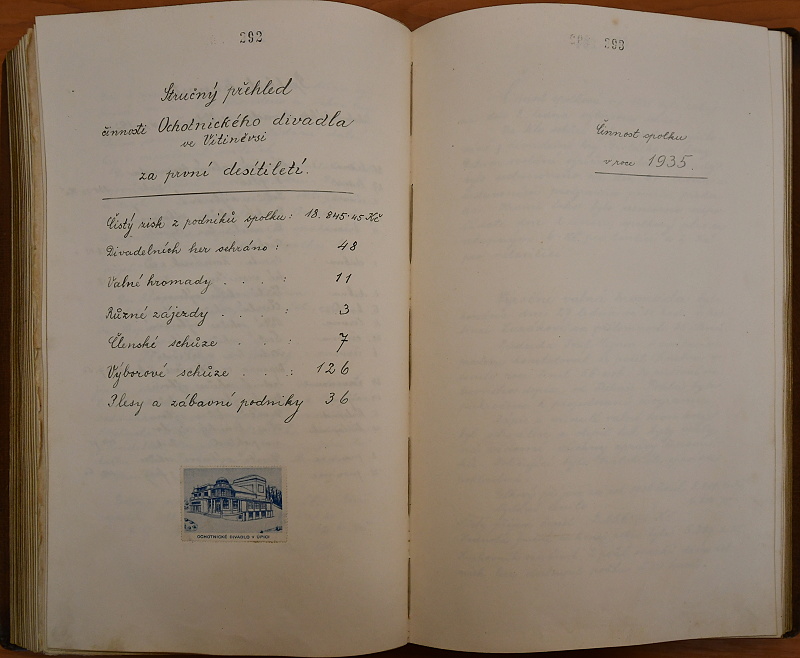 292
Stručný přehled
činnosti Ochotnického divadla
ve Vítiněvsi
za první desítiletí.
Čistý zisk z podniků spolku: 18.845.45 Kč
Divadelních her sehráno: 48
Valné hromady . . . : 11
Různé zájezdy . . . : 3
Členské schůze . . : 7
Výborové schůze . . : 126
Plesy a zábavní podniky 36
OCHOTNICKÉ DIVADLO V ÚPICI
293
Činnost spolku
v roce 1935.